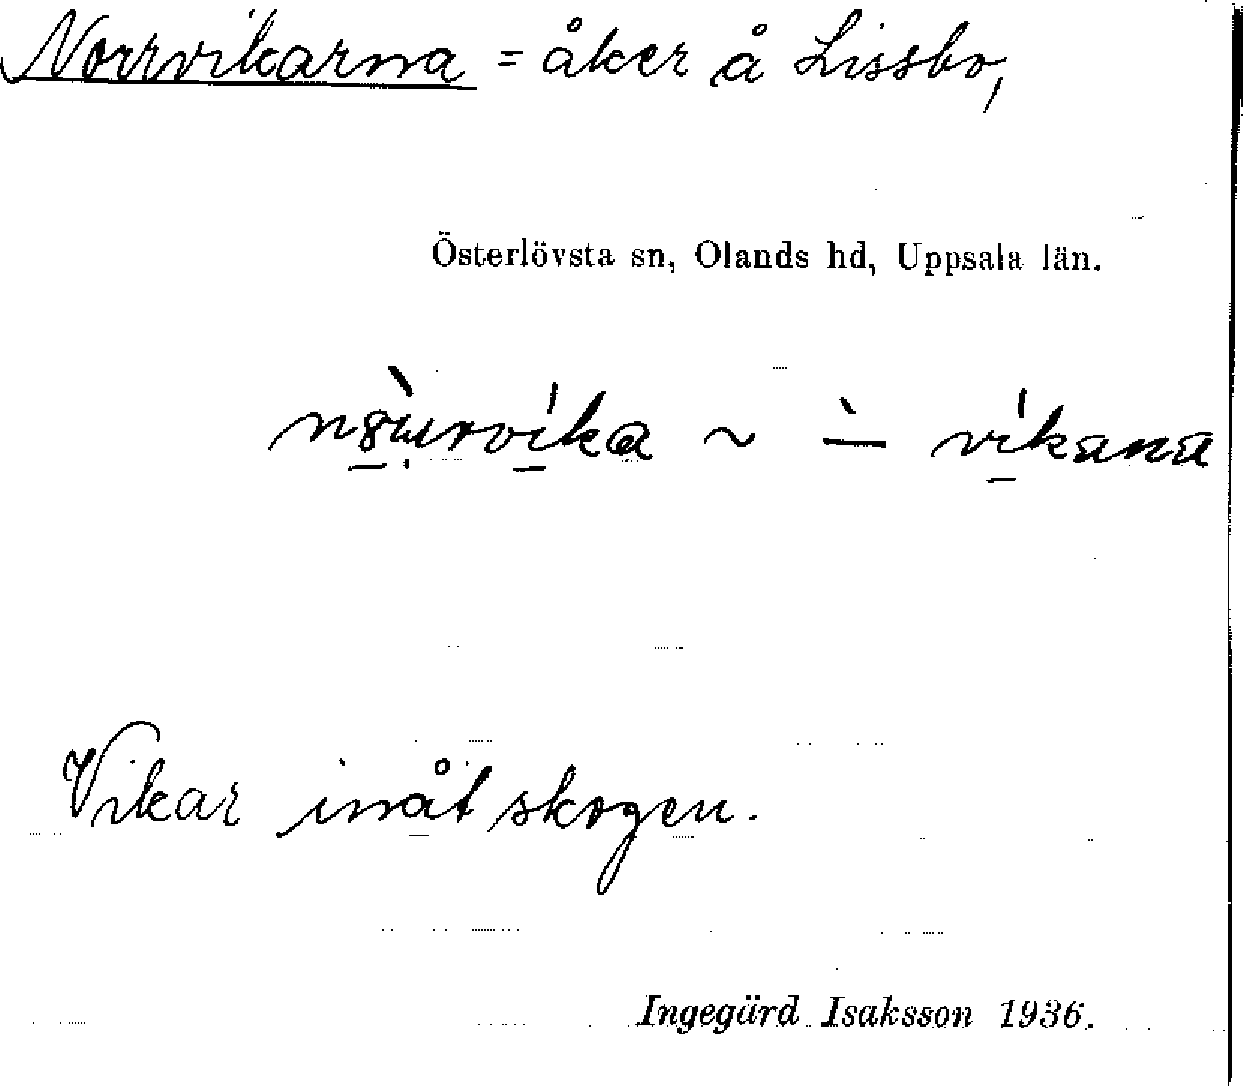 Norrvikarna = åker å Lissbo,
Österlövsta sn, Olands hd, Uppsala län.
Vikar inåt skogen.
Ingegärd Isaksson 1936.